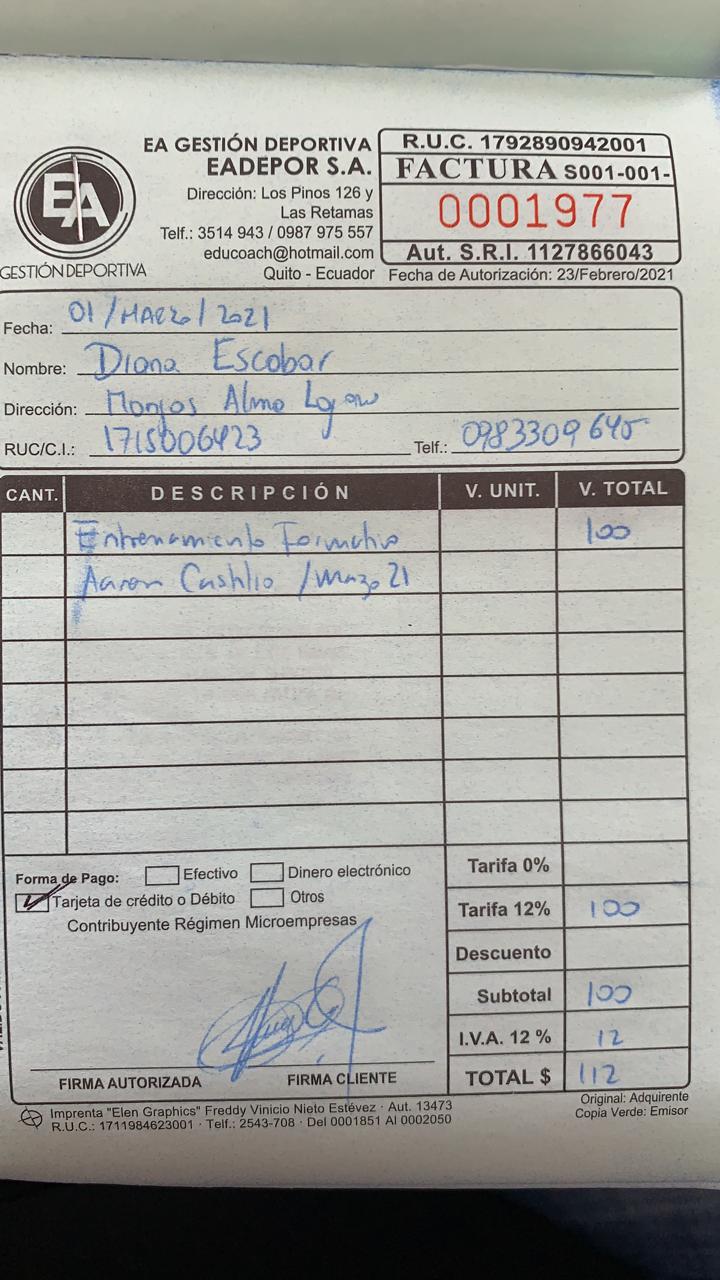 EA
GESTIÓN DEPORTIVA
EA GESTIÓN DEPORTIVA
EADEPOR S.A.
Dirección: Los Pinos 126 y
Las Retamas
Telf.: 3514 943 / 0987 975 557
educoach@hotmail.com
Quito - Ecuador
R.U.C. 1792890942001
FACTURA S001-001-
0001977
Aut. S.R.I. 1127866043
Fecha de Autorización: 23/Febrero/2021
Fecha: 01/MARZO/2021
Nombre: Diana Escobar
Dirección: Monjas Alma Lojana
RUC/C.I.: 1715006423 Telf.: 0983309645
CANT. DESCRIPCIÓN V. UNIT. V. TOTAL
Entrenamiento Formativo 100
Aaron Castillo /marzo 21
Forma de Pago: Efectivo Dinero electrónico
Tarjeta de crédito o Débito Otros
Contribuyente Régimen Microempresas
Tarifa 0%
Tarifa 12% 100
Descuento
Subtotal 100
I.V.A. 12 % 12
TOTAL $ 112
FIRMA AUTORIZADA FIRMA CLIENTE
Imprenta "Elen Graphics" Freddy Vinicio Nieto Estévez · Aut. 13473
R.U.C.: 1711984623001 · Telf.: 2543-708 · Del 0001851 Al 0002050
Original: Adquirente
Copia Verde: Emisor